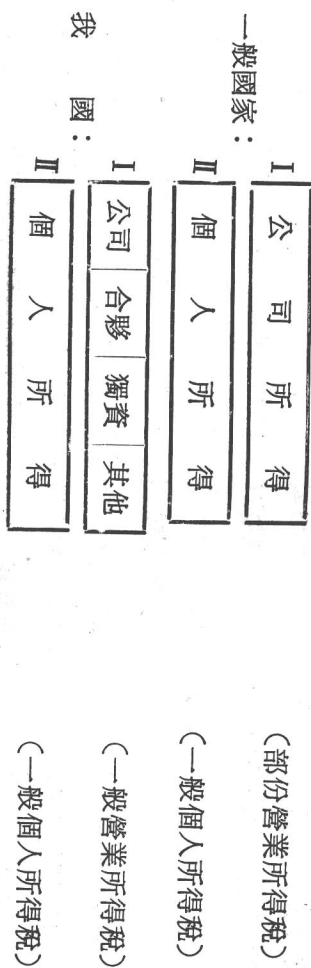 一般國家：I 公司所得 （部份營業所得稅）
II 個人所得 （一般個人所得稅）
我國：I 公司 合夥 獨資 其他 （一般營業所得稅）
II 個人所得 （一般個人所得稅）